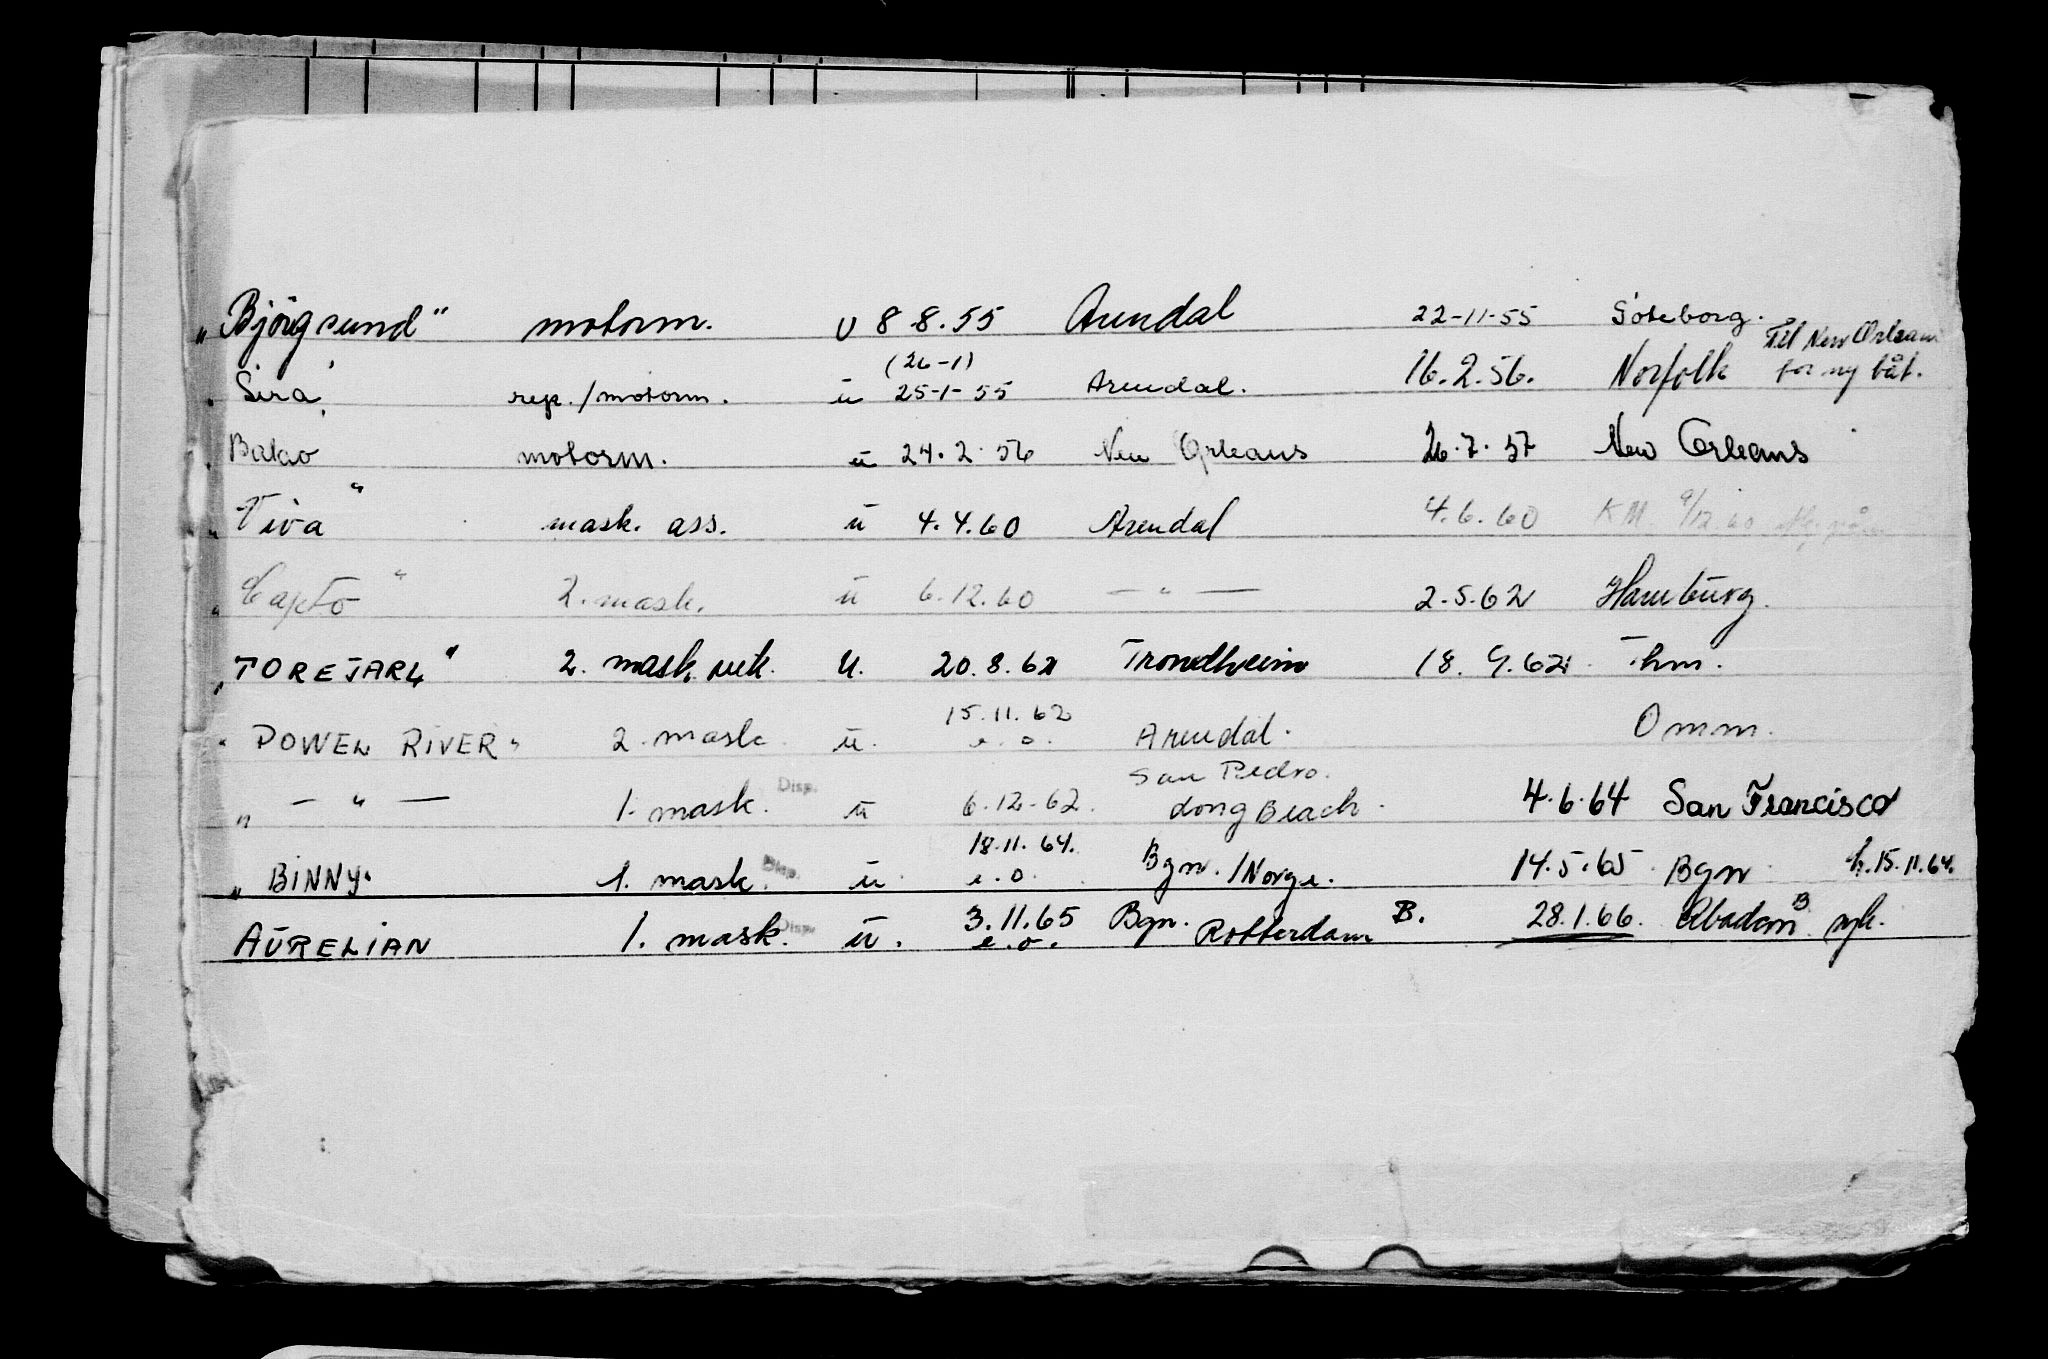 „Björgsund" motorm. u 8-8.55 Arendal 22-11-55 Göteborg. Til New Orleans
(26-1)
„Sira" rep./motorm. ü 25-1-55 Arendal. 16.2.56. Norfolk for ny båt.
„Bakao motorm. ü 24.2.56 New Orleans 26.7.57 New Orleans
„Viva" mask. ass. ü 4.4.60 Arendal 4.6.60 KM 9/12 60
„Capto" 2. mask. ü 6.12.60 — " — 2.5.62 Hamburg.
„TOREJARL" 2. mask. vik. u. 20.8.62 Trondheim 18.9.62 Thm.
15.11.62
"POWELL RIVER" 2. mask ü. e.o. Arendal. Omm.
San Pedro.
„ — " — 1. mask. Disp. ü 6.12-62. Long Beach. 4.6.64 San Francisco
18.11.64.
„BINNY" 1. mask. Disp. ü e.o. Bgn./Norge. 14.5.65 Bgn h.15.11.64.
3.11.65
AÜRELIAN 1. mask. Disp. ü. e.o. Bgn. Rotterdam B. 28.1.66. Abadan B syk.